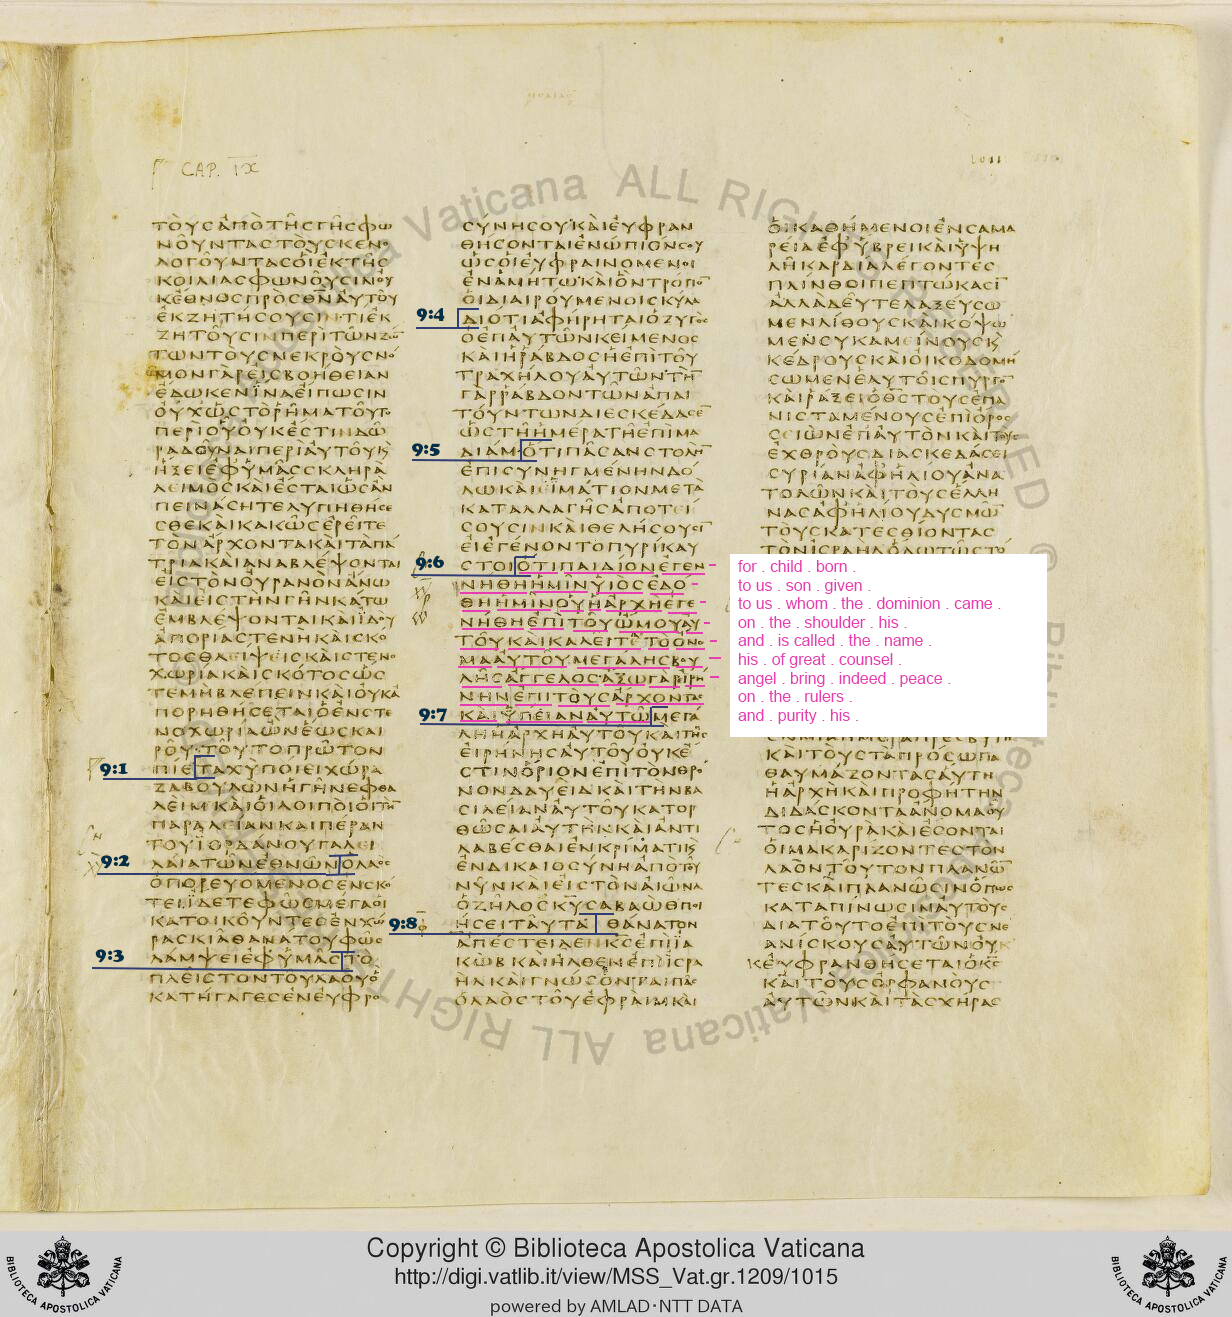 CAP. IX
ΤΟΥϹΑΠΟΤΗϹΓΗϹΦΩ
ΝΟΥΝΤΑϹΤΟΥϹΚΕΝΟ
ΛΟΓΟΥΝΤΑϹΟΙΕΚΤΗϹ
ΚΟΙΛΙΑϹΦΩΝΟΥϹΙΝΟΥ
ΚΕΘΝΟϹΠΡΟϹΘΝΑΥΤΟΥ
ΕΚΖΗΤΗϹΟΥϹΙΝΤΙΕΚ
ΖΗΤΟΥϹΙΝΠΕΡΙΤΩΝΖΩ
ΤΩΝΤΟΥϹΝΕΚΡΟΥϹΝΟ
ΜΟΝΓΑΡΕΙϹΒΟΗΘΕΙΑΝ
ΕΔΩΚΕΝΙΝΑΕΙΠΩϹΙΝ
ΟΥΧΩϹΤΟΡΗΜΑΤΟΥΤΟ
ΠΕΡΙΟΥΟΥΚΕϹΤΙΝΔΩ
ΡΑΔΟΥΝΑΙΠΕΡΙΑΥΤΟΥΚ
ΗΞΕΙΕΦΥΜΑϹϹΚΛΗΡΑ
ΛΕΙΜΟϹΚΑΙΕϹΤΑΙΩϹΑΝ
ΠΕΙΝΑϹΗΤΕΛΥΠΗΘΗϹΕ
ϹΘΕΚΑΙΚΑΚΩϹΕΡΕΙΤΕ
ΤΟΝΑΡΧΟΝΤΑΚΑΙΤΑΠΑ
ΤΡΙΑΚΑΙΑΝΑΒΛΕΨΟΝΤΑΙ
ΕΙϹΤΟΝΟΥΡΑΝΟΝΑΝΩ
ΚΑΙΕΙϹΤΗΝΓΗΝΚΑΤΩ
ΕΜΒΛΕΨΟΝΤΑΙΚΑΙΙΔΟΥ
ΑΠΟΡΙΑϹΤΕΝΗΚΑΙϹΚΟ
ΤΟϹΘΛΕΙΨΕΙϹΚΑΙϹΤΕΝΟ
ΧΩΡΙΑΚΑΙϹΚΟΤΟϹΩϹ
ΤΕΜΗΒΛΕΠΕΙΝΚΑΙΟΥΚΑ
ΠΟΡΗΘΗϹΕΤΑΙΟΕΝϹΤΕ
ΝΟΧΩΡΙΑΩΝΕΩϹΚΑΙ
ΡΟΥΤΟΥΤΟΠΡΩΤΟΝ
9:1 ΠΙΕΤΑΧΥΠΟΙΕΙΧΩΡΑ
ΖΑΒΟΥΛΩΝΗΓΗΝΕΦΘΑ
ΛΕΙΜΚΑΙΟΙΛΟΙΠΟΙΟΙΤΗ
ΠΑΡΑΛΕΙΑΝΚΑΙΠΕΡΑΝ
ΤΟΥΙΟΡΔΑΝΟΥΓΑΛΕΙ
9:2 ΛΑΙΑΤΩΝΕΘΝΩΝΟΛΑΟϹ
ΟΠΟΡΕΥΟΜΕΝΟϹΕΝϹΚΟ
ΤΕΙΙΔΕΤΕΦΩϹΜΕΓΑΟΙ
ΚΑΤΟΙΚΟΥΝΤΕϹΕΝΧΩ
ΡΑϹΚΙΑΘΑΝΑΤΟΥΦΩϹ
9:3 ΛΑΜΨΕΙΕΦΥΜΑϹΤΟ
ΠΛΕΙϹΤΟΝΤΟΥΛΑΟΥΟ
ΚΑΤΗΓΑΓΕϹΕΝΕΥΦΡΟ
ϹΥΝΗϹΟΥΚΑΙΕΥΦΡΑΝ
ΘΗϹΟΝΤΑΙΕΝΩΠΙΟΝϹΟΥ
ΩϹΟΙΕΥΦΡΑΙΝΟΜΕΝΟΙ
ΕΝΑΜΗΤΩΚΑΙΟΝΤΡΟΠΟ
ΟΙΔΙΑΙΡΟΥΜΕΝΟΙϹΚΥΛΑ
9:4 ΔΙΟΤΙΑΦΗΡΗΤΑΙΟΖΥΓΟϹ
ΟΕΠΑΥΤΩΝΚΕΙΜΕΝΟϹ
ΚΑΙΗΡΑΒΔΟϹΗΕΠΙΤΟΥ
ΤΡΑΧΗΛΟΥΑΥΤΩΝΤΗ
ΓΑΡΡΑΒΔΟΝΤΩΝΑΠΑΙ
ΤΟΥΝΤΩΝΔΙΕϹΚΕΔΑϹΕ
ΩϹΤΗΗΜΕΡΑΤΗΕΠΙΜΑ
9:5 ΔΙΑΜΟΤΙΠΑϹΑΝϹΤΟΛΗ
ΕΠΙϹΥΝΗΓΜΕΝΗΝΔΟ
ΛΩΚΑΙΕΙΜΑΤΙΟΝΜΕΤΑ
ΚΑΤΑΛΛΑΓΗϹΑΠΟΤΕΙ
ϹΟΥϹΙΝΚΑΙΘΕΛΗϹΟΥϹΙ
ΕΙΕΓΕΝΟΝΤΟΠΥΡΙΚΑΥ
9:6 ϹΤΟΙΟΤΙΠΑΙΔΙΟΝΕΓΕΝ
ΝΗΘΗΗΜΙΝΥΙΟϹΕΔΟ
ΘΗΗΜΙΝΟΥΗΑΡΧΗΕΓΕ
ΝΗΘΗΕΠΙΤΟΥΩΜΟΥΑΥ
ΤΟΥΚΑΙΚΑΛΕΙΤΕΤΟΟΝΟ
ΜΑΑΥΤΟΥΜΕΓΑΛΗϹΒΟΥ
ΛΗϹΑΓΓΕΛΟϹΑΞΩΓΑΡΙΡΗ
ΝΗΝΕΠΙΤΟΥϹΑΡΧΟΝΤΑϹ
9:7 ΚΑΙΥΓΕΙΑΝΑΥΤΩΜΕΓΑ
ΛΗΗΑΡΧΗΑΥΤΟΥΚΑΙΤΗϹ
ΕΙΡΗΝΗϹΑΥΤΟΥΟΥΚΕ
ϹΤΙΝΟΡΙΟΝΕΠΙΤΟΝΘΡΟ
ΝΟΝΔΑΥΕΙΔΚΑΙΤΗΝΒΑ
ϹΙΛΕΙΑΝΑΥΤΟΥΚΑΤΟΡ
ΘΩϹΑΙΑΥΤΗΝΚΑΙΑΝΤΙ
ΛΑΒΕϹΘΑΙΕΝΚΡΙΜΑΤΙΚ
ΕΝΔΙΚΑΙΟϹΥΝΗΑΠΟΤΟΥ
ΝΥΝΚΑΙΕΙϹΤΟΝΑΙΩΝΑ
ΟΖΗΛΟϹΚΥϹΑΒΑΩΘΠΟΙ
9:8 ΗϹΕΙΤΑΥΤΑ ΘΑΝΑΤΟΝ
ΑΠΕϹΤΕΙΛΕΝΚϹΕΠΙΙΑ
ΚΩΒΚΑΙΗΛΘΕΝΕΠΙΙϹΡΑ
ΗΛΚΑΙΓΝΩϹΟΝΤΑΙΠΑϹ
ΟΛΑΟϹΤΟΥΕΦΡΑΙΜΚΑΙ
ΟΙΚΑΘΗΜΕΝΟΙΕΝϹΑΜΑ
ΡΕΙΑΕΦΥΒΡΕΙΚΑΙΥΨΗ
ΛΗΚΑΡΔΙΑΛΕΓΟΝΤΕϹ
ΠΛΙΝΘΟΙΠΕΠΤΩΚΑϹΙ
ΑΛΛΑΔΕΥΤΕΛΑΞΕΥϹΩ
ΜΕΝΛΙΘΟΥϹΚΑΙΚΟΨΩ
ΜΕΝϹΥΚΑΜΕΙΝΟΥϹΚ
ΚΕΔΡΟΥϹΚΑΙΟΙΚΟΔΟΜΗ
ϹΩΜΕΝΕΑΥΤΟΙϹΠΥΡΓΟ
ΚΑΙΡΑΞΕΙΟΘϹΤΟΥϹΕΠΑ
ΝΙϹΤΑΜΕΝΟΥϹΕΠΙΟΡΟϹ
ϹΕΙΩΝΕΠΑΥΤΟΝΚΑΙΤΟΥϹ
ΕΧΘΡΟΥϹΔΙΑϹΚΕΔΑϹΕΙ
ϹΥΡΙΑΝΑΦΗΛΙΟΥΑΝΑ
ΤΟΛΩΝΚΑΙΤΟΥϹΕΛΛΗ
ΝΑϹΑΦΗΛΙΟΥΔΥϹΜΩ
ΤΟΥϹΚΑΤΕϹΘΙΟΝΤΑϹ
ΤΟΝΙϹΡΑΗΛΟΛΩΤΩϹΤΟ
for . child . born .
to us . son . given .
to us . whom . the . dominion . came .
on . the . shoulder . his .
and . is called . the . name .
his . of great . counsel .
angel . bring . indeed . peace .
on . the . rulers .
and . purity . his .
ΚΑΙΤΟΥϹΤΑΠΡΟϹΩΠΑ
ΘΑΥΜΑΖΟΝΤΑϹΑΥΤΗ
ΗΑΡΧΗΚΑΙΠΡΟΦΗΤΗΝ
ΔΙΔΑϹΚΟΝΤΑΑΝΟΜΑΟΥ
ΤΟϹΗΟΥΡΑΚΑΙΕϹΟΝΤΑΙ
ΟΙΜΑΚΑΡΙΖΟΝΤΕϹΤΟΝ
ΛΑΟΝΤΟΥΤΟΝΠΛΑΝΩ
ΤΕϹΚΑΙΠΛΑΝΩϹΙΝΟΠΩϹ
ΚΑΤΑΠΙΝΩϹΙΝΑΥΤΟΥϹ
ΔΙΑΤΟΥΤΟΕΠΙΤΟΥϹΝΕ
ΑΝΙϹΚΟΥϹΑΥΤΩΝΟΥΚ
ΕΥΦΡΑΝΘΗϹΕΤΑΙΟΚϹ
ΚΑΙΤΟΥϹΟΡΦΑΝΟΥϹ
ΑΥΤΩΝΚΑΙΤΑϹΧΗΡΑϹ
Vaticana ALL RIGHTS RESERVED © Biblioteca Apostolica Vaticana ALL RIGHTS
BIBLIOTECA APOSTOLICA VATICANA
Copyright © Biblioteca Apostolica Vaticana
http://digi.vatlib.it/view/MSS_Vat.gr.1209/1015
powered by AMLAD·NTT DATA
BIBLIOTECA APOSTOLICA VATICANA